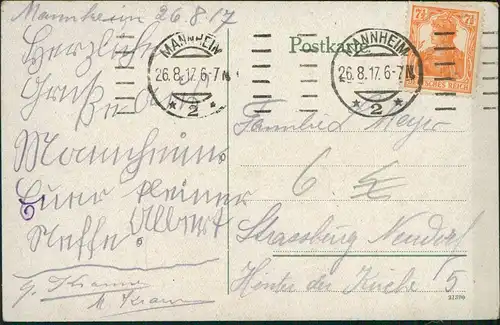 Mannheim 26.8.17
Herzliche
Gruße aus
Mannheim.
Euer kleiner
Neffe. Albert
Postkarte
MANNHEIM
26.8.17.6-7N.
* 2 *
MANNHEIM
26.8.17.6-7N.
* 2 *
7½ 7½
DEUTSCHES REICH
Familie Meyer
6.
Strassburg Neudorf
Hinter der Kirche 5